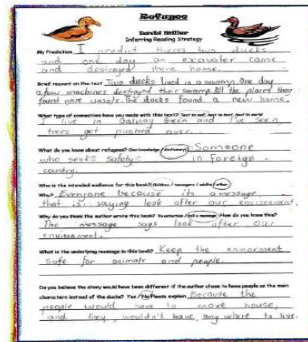 Refugees
David Miller
Inferring Reading Strategy
My Prediction I predict theres two ducks
and one day an excavater came
and destroyed there home.
Brief recount on the text Two ducks lived in a swamp. One day
a few machines destroyed their swamp. All the places they
found were unsafe. The ducks found a new home.
What type of connections have you made with this text?
I live in and I've seen
trees get pushed over.
What do you know about refugees? Our knowledge / dictionary Someone
who seeks safety in foreign
country.
Who is the intended audience for this book? Children / teenagers / adults / other
Why? Everyone because its a message
that is saying look after our enviroment.
Why do you think the author wrote this book? a message How do you know this?
The message says look after our
enviroment.
What is the underlying message in this book? Keep the
safe for animals and people.
Do you believe the story would have been different if the author chose to have people as the main
characters instead of the ducks? Yes / No Please explain Because the
people would have to make house,
and they wouldn't have any where to live.